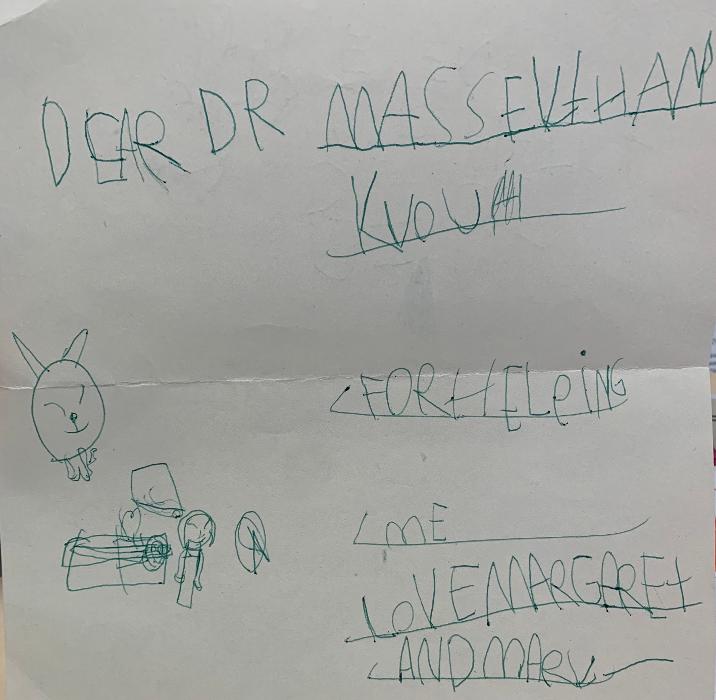 DEAR DR MASSEVEHAN
KVOU
FOR HELPING
ME
LOVE MARGARET
AND MARV